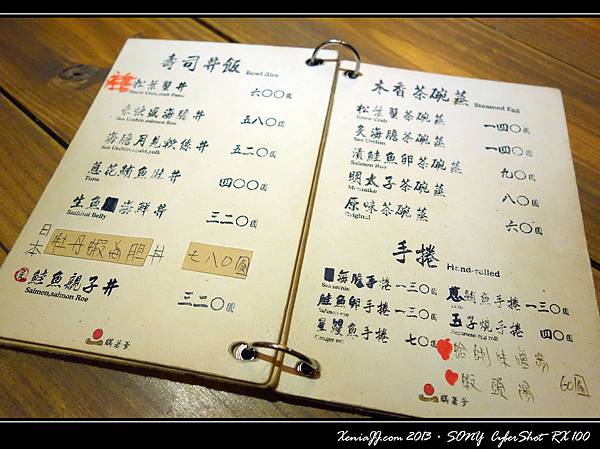 壽司丼飯 Bowl Rice
松葉蟹丼 六〇〇圓
海膽丼 五八〇圓
Sea Urchin, salmon Roe
海膽月見軟絲丼 五二〇圓
蔥花鮪魚丼 四〇〇圓
Tuna
生魚 海鮮丼 三二〇圓
Sashimi Belly
日本牡丹蝦海膽丼 七八〇圓
鮭魚親子丼 三二〇圓
Salmon, salmon Roe
木香茶碗蒸 Steamed
松葉蟹茶碗蒸 一四〇圓
Snow Crab
炙海膽茶碗蒸 一四〇圓
Sea Urchin
漬鮭魚卵茶碗蒸 九〇圓
Salmon Roe
明太子茶碗蒸 八〇圓
Mentaiko
原味茶碗蒸 六〇圓
Original
手捲 Hand-rolled
海膽手捲 一三〇圓
Sea urchin
鮭魚卵手捲 一三〇圓
Salmon roe
星鰻魚手捲 七〇圓
Conger eel
蔥鮪魚手捲 一三〇圓
玉子燒手捲 四〇圓
Japanese egg roll
蛤蜊味噌湯
蝦頭湯 60圓
XeniaJJ.com 2013 · SONY CyberShot RX100